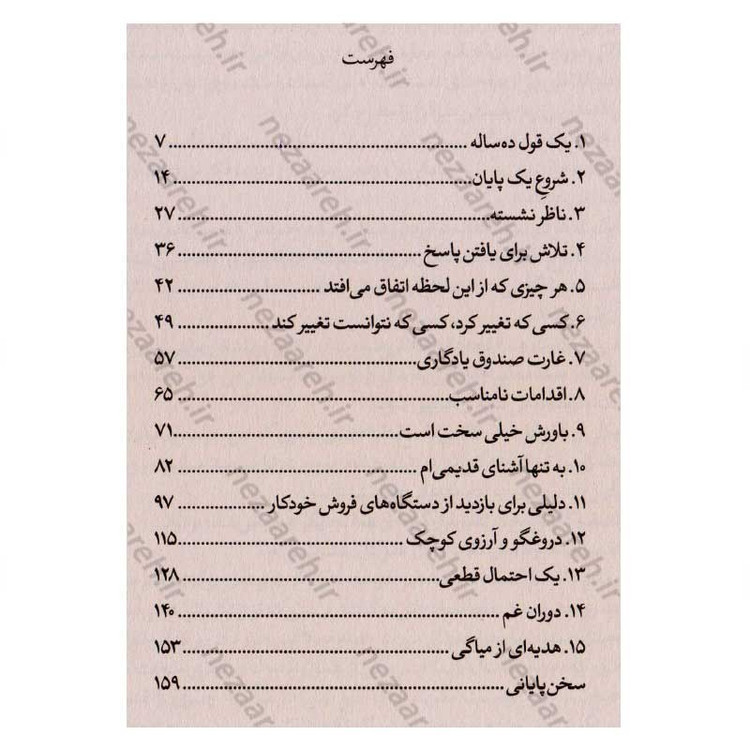 فهرست
۱. یک قول ده‌ساله ........ ۷
۲. شروعِ یک پایان ........ ۱۴
۳. ناظر نشسته ........ ۲۷
۴. تلاش برای یافتن پاسخ ........ ۳۶
۵. هر چیزی که از این لحظه اتفاق می‌افتد ........ ۴۲
۶. کسی که تغییر کرد، کسی که نتوانست تغییر کند ........ ۴۹
۷. غارت صندوق یادگاری ........ ۵۷
۸. اقدامات نامناسب ........ ۶۵
۹. باورش خیلی سخت است ........ ۷۱
۱۰. به تنها آشنای قدیمی‌ام ........ ۸۲
۱۱. دلیلی برای بازدید از دستگاه‌های فروش خودکار ........ ۹۷
۱۲. دروغگو و آرزوی کوچک ........ ۱۱۵
۱۳. یک احتمال قطعی ........ ۱۲۸
۱۴. دوران غم ........ ۱۴۰
۱۵. هدیه‌ای از میاگی ........ ۱۵۳
سخن پایانی ........ ۱۵۹
nezaareh.ir